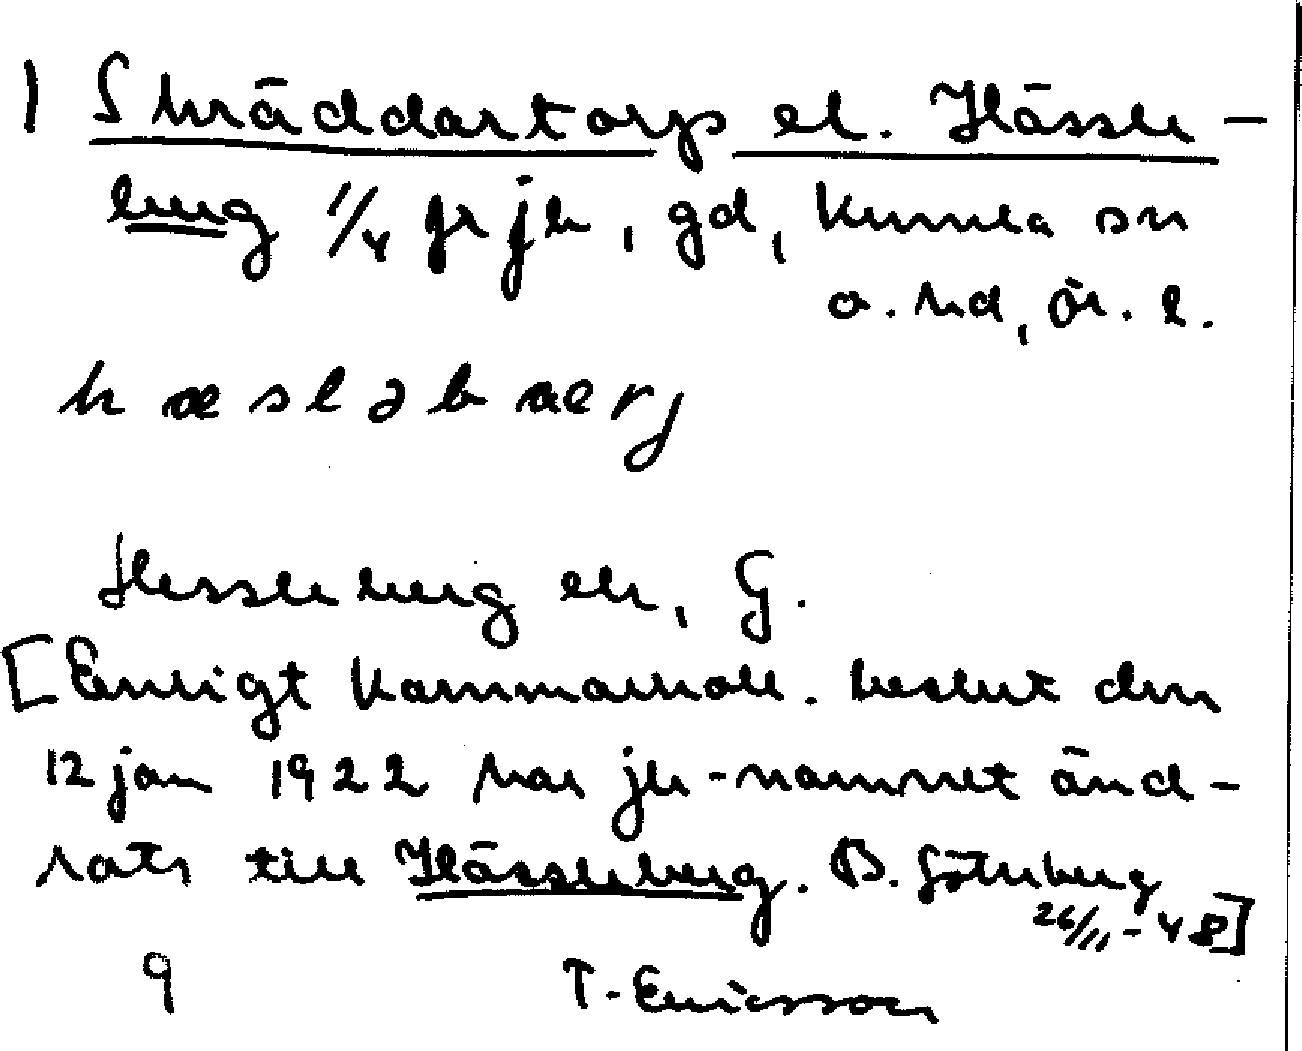 1 Skräddartorp el. Hässle-
berg 1/4 fr jb, gd, Kumla sn
o. hd, Ör. l.
hæsləbærj
Hessleberg ek, G.
[Enligt Kammarkoll. beslut den
12 jan 1922 har jb-namnet änd-
rats till Hässleberg. B. Göterberg
26/11 - 48]
9 T. Ericsson